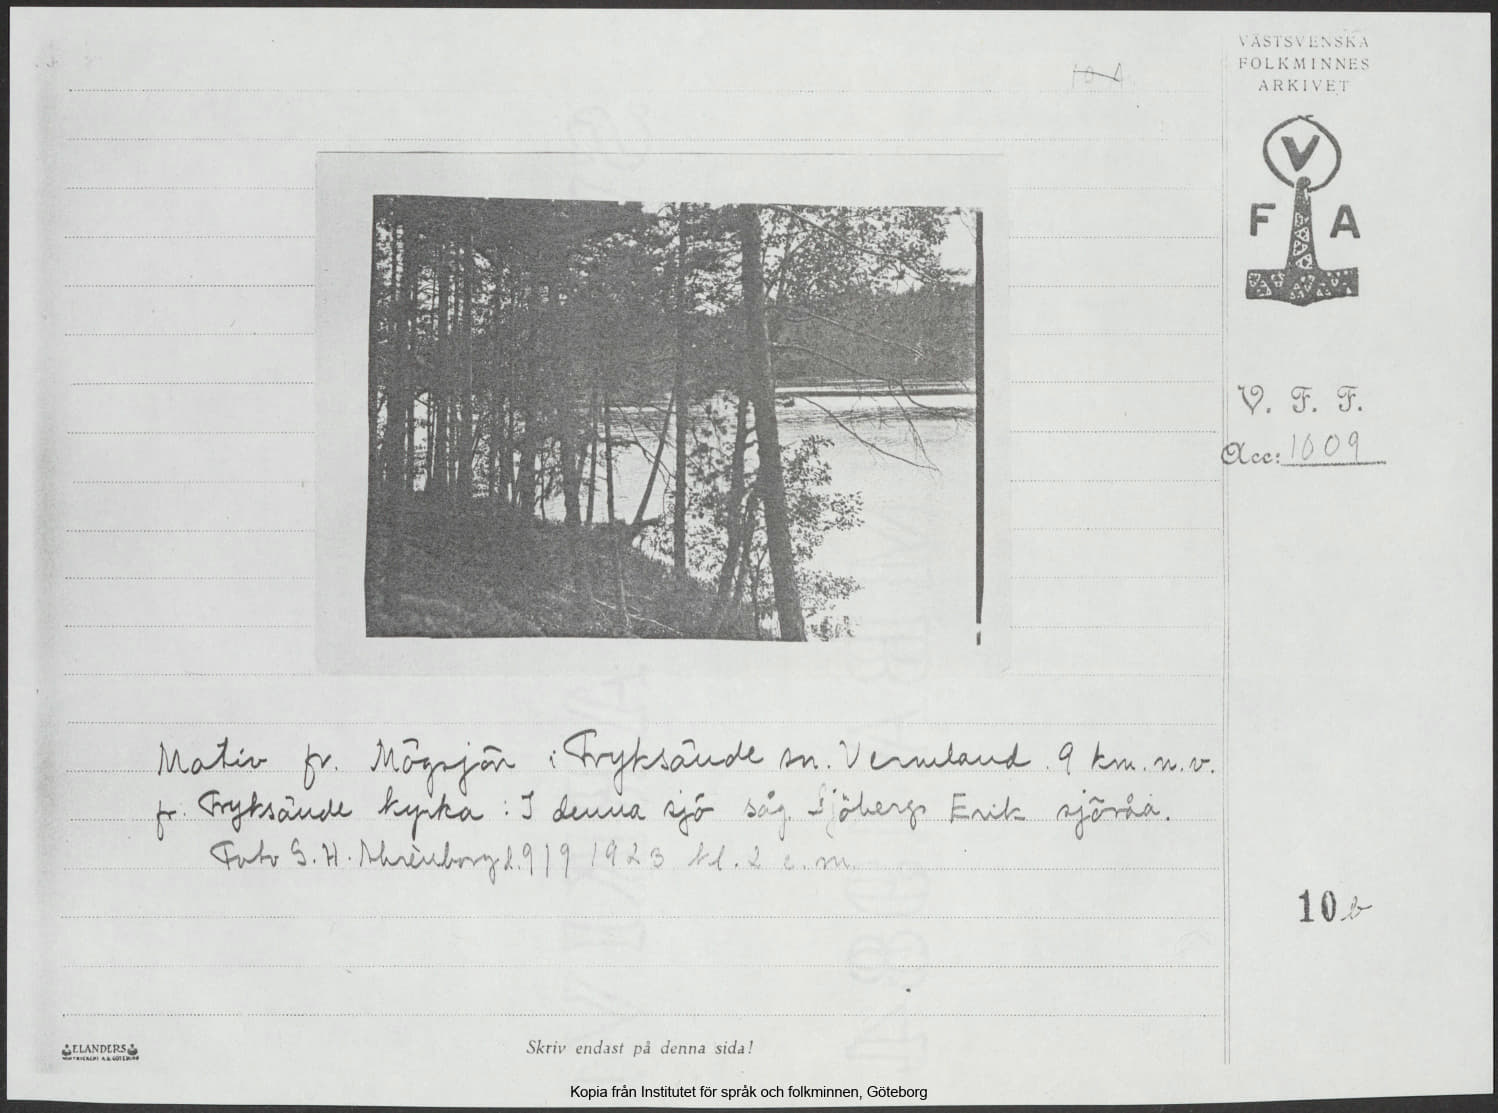 VÄSTSVENSKA
FOLKMINNES
ARKIVET
10 A
V
F A
V. F. F.
Acc: 1009
Motiv fr. Mögsjön i Fryksände sn. Vermland. 9 km. n.v.
fr. Fryksände kyrka: I denna sjö såg Sjöbergs Erik sjöråa.
Foto S. H. 2. 9/9 1923 kl. 2 e. m.
10 b
ELANDERS
Skriv endast på denna sida!
Kopia från Institutet för språk och folkminnen, Göteborg